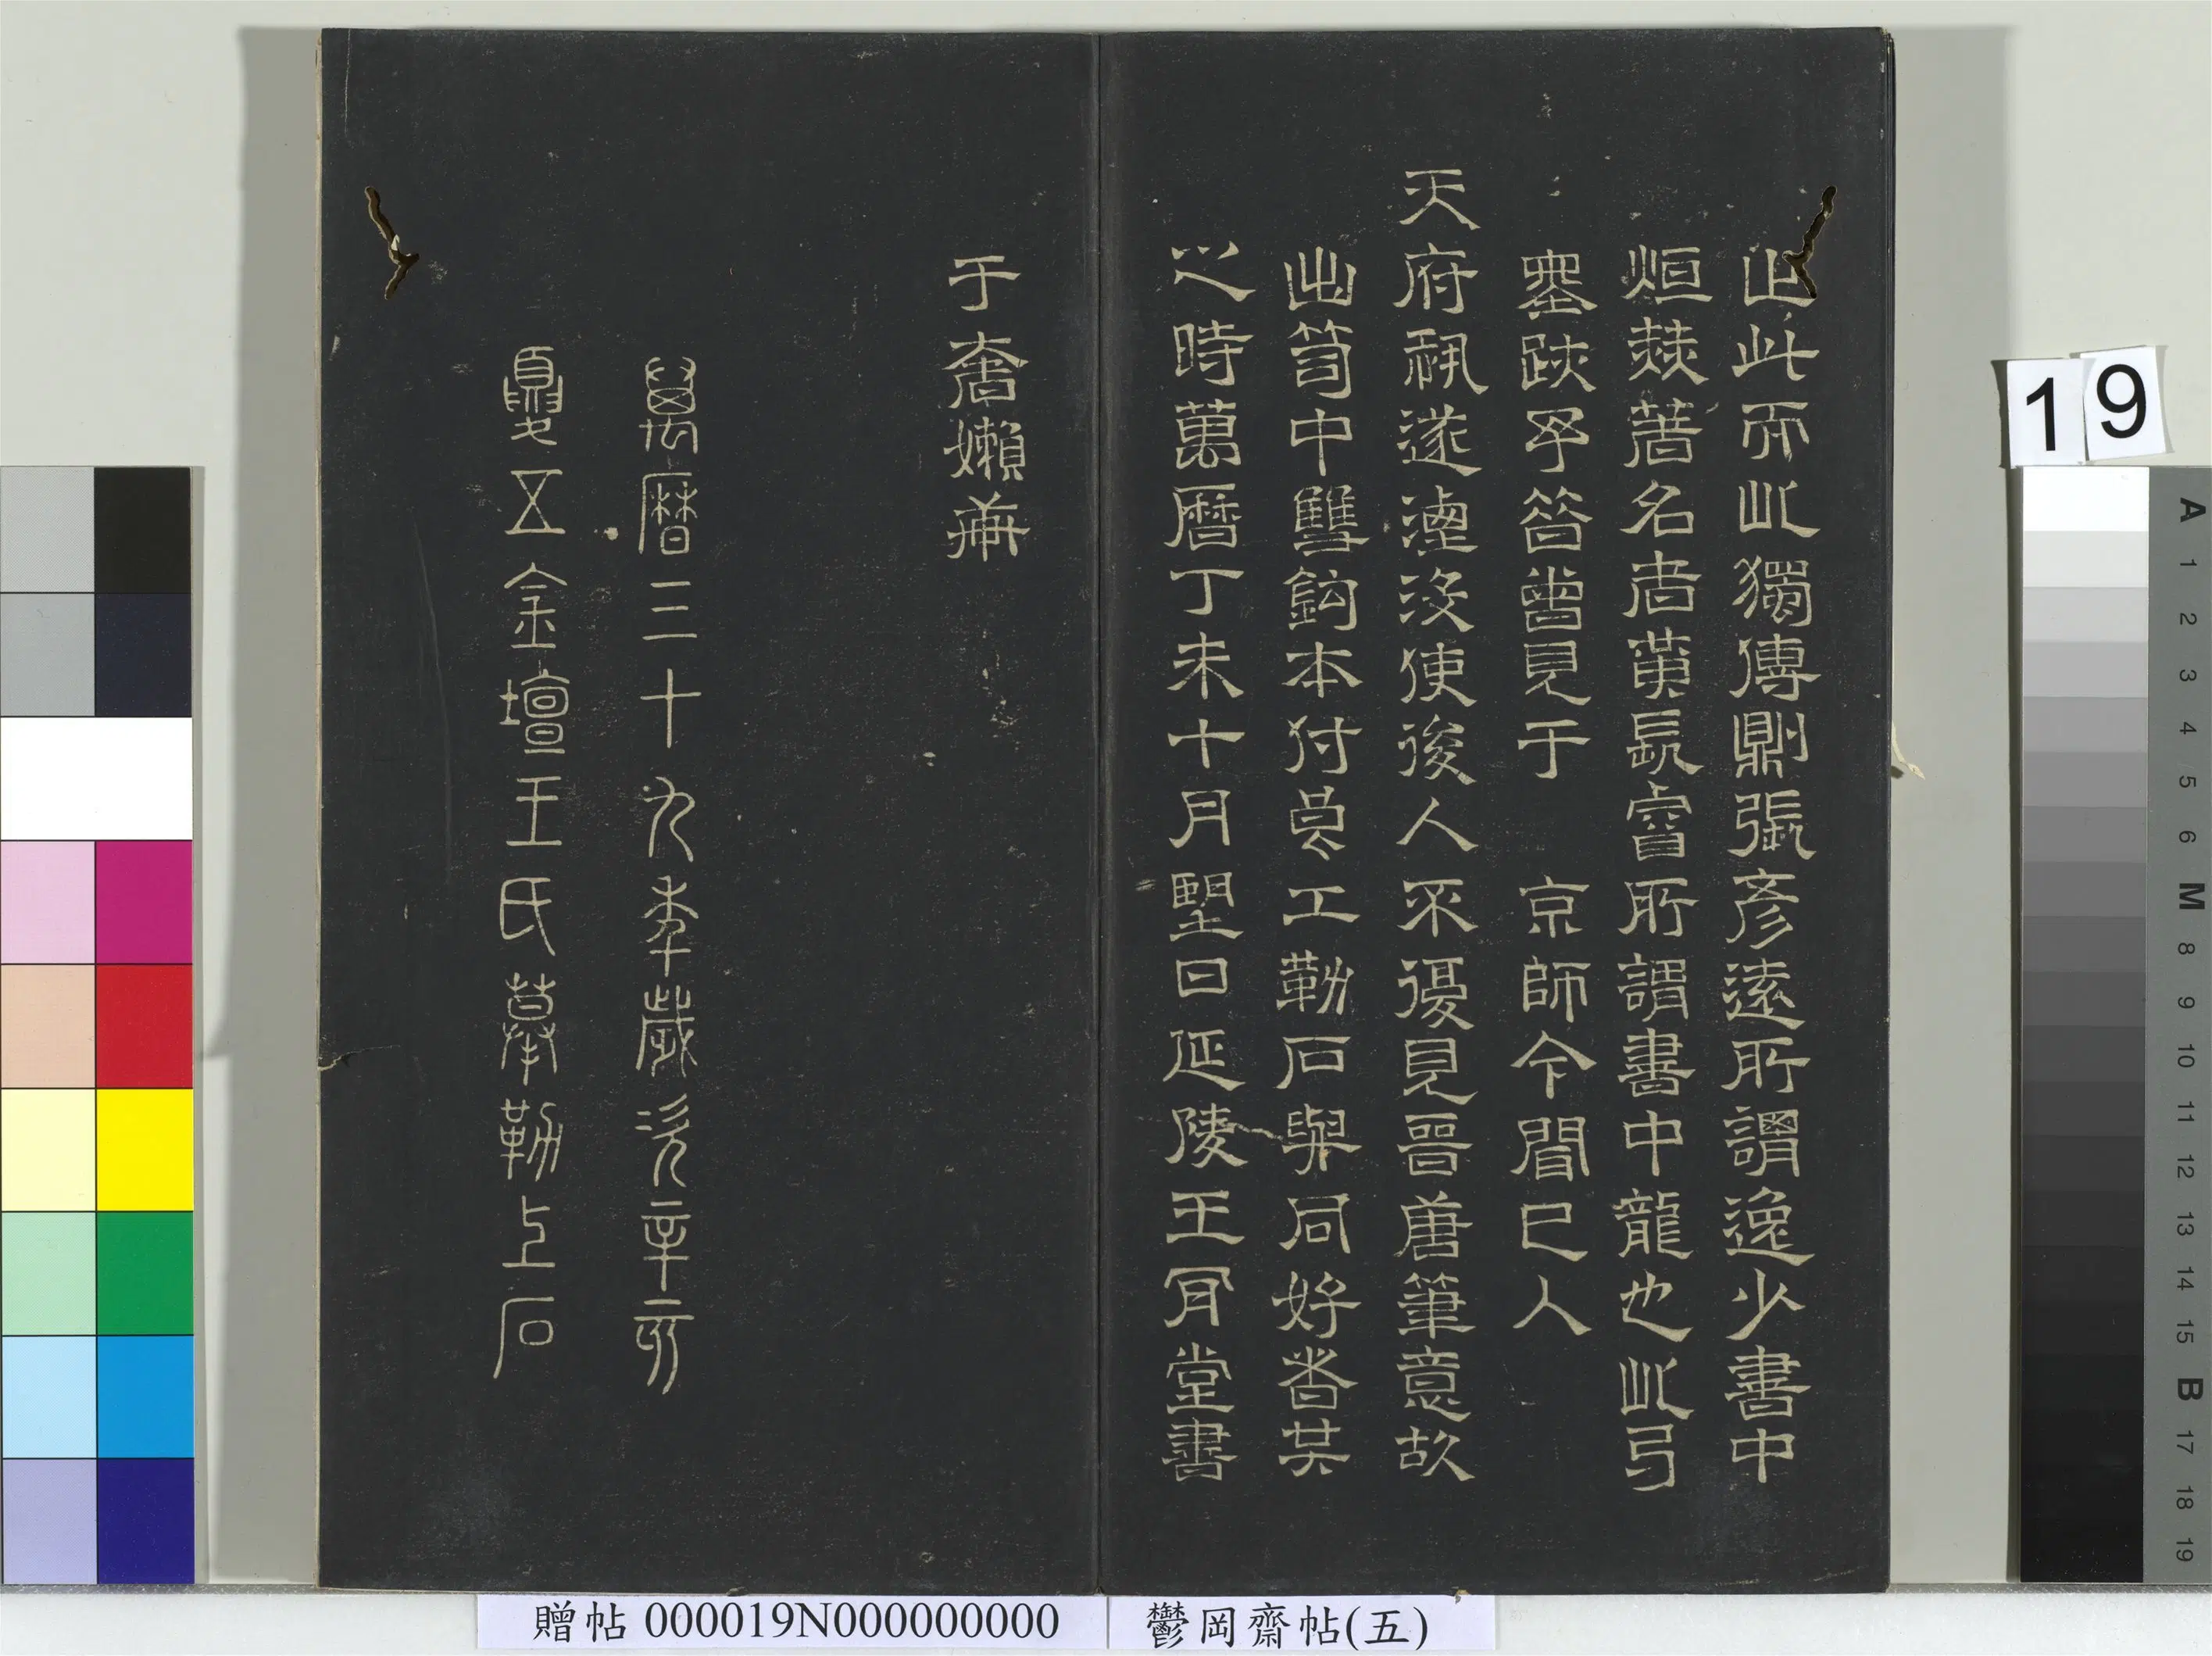 止此而此獨傳則張彥遠所謂逸少書中
烜赫著名者黃長睿所謂書中龍也此弓
跋予昔曾見于　京師今聞已入
天府恐遂湮沒使後人不復見晉唐筆意故
出笥中雙鉤本付良工勒石與同好者共
之時萬曆丁未十月朢日延陵王肯堂書
于奢嬾菴
萬曆三十九年歲次辛亥
夏五金壇王氏摹勒上石
19
A 1 2 3 4 5 6 M 8 9 10 11 12 13 14 15 B 17 18 19
贈帖 000019N000000000
鬱岡齋帖(五)